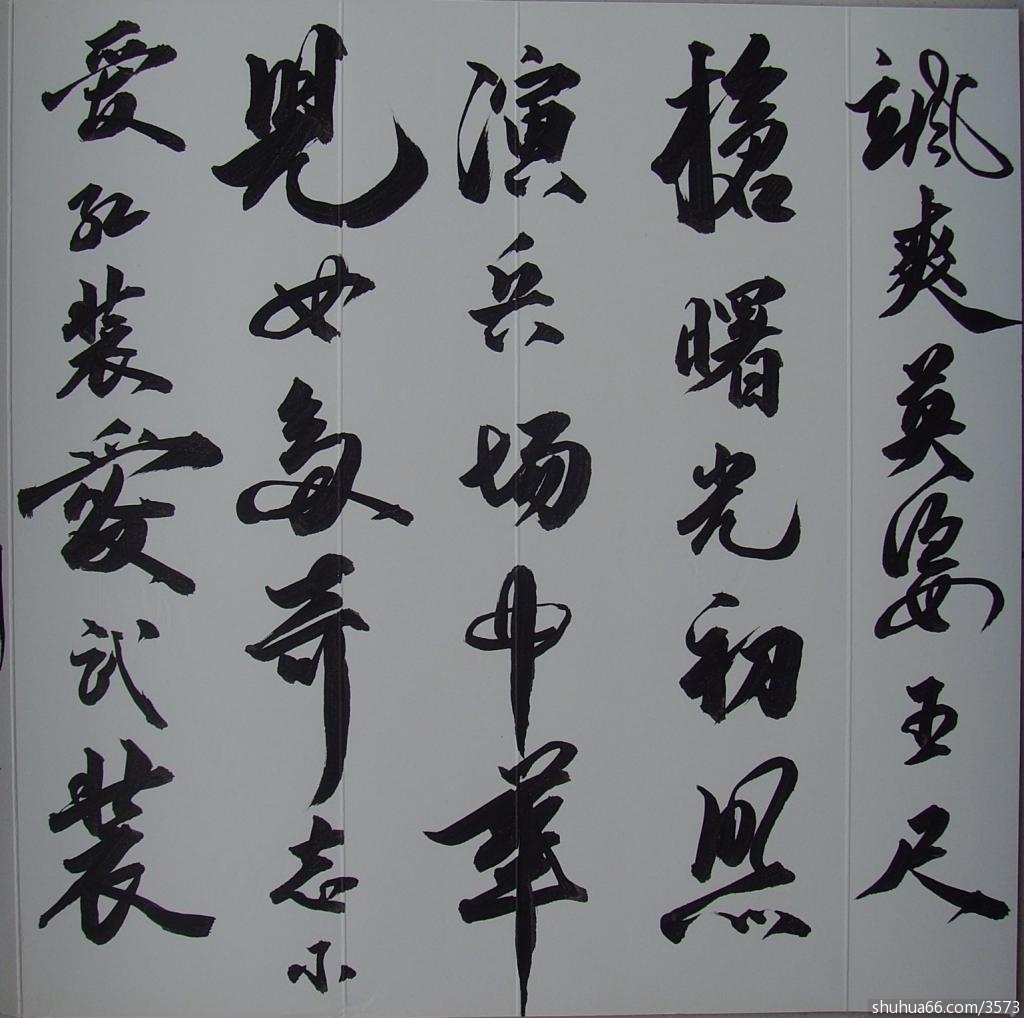 颯爽英姿五尺
槍曙光初照
演兵场中華
兒女多奇志不
爱紅裝愛武裝
shuhua66.com/3573